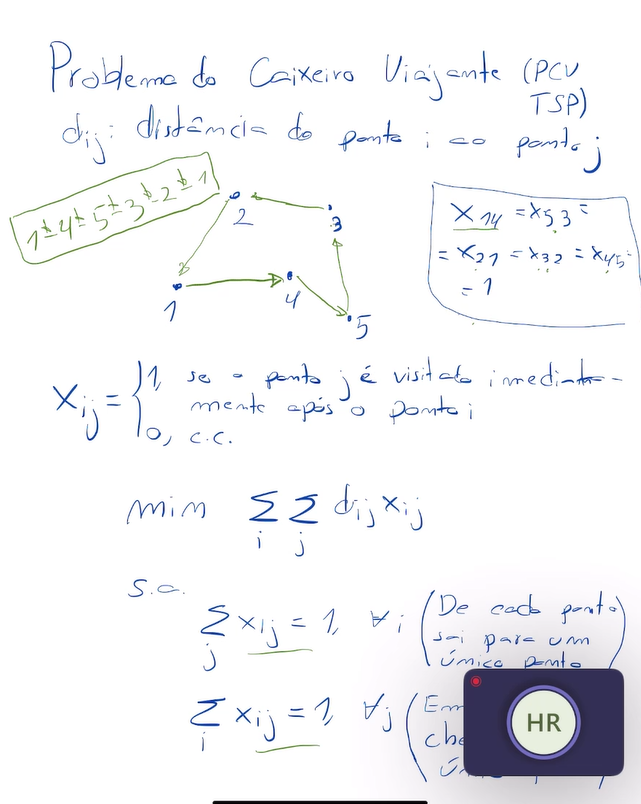 Problema do Caixeiro Viajante (PCV
TSP)
dij: distância do ponto i ao ponto j
1 → 4 → 5 → 3 → 2 → 1
2
3
1
4
5
X14 = x53 =
= x21 = x32 = x45 =
= 1
Xij = { 1, se o ponto j é visitado imediata-
mente após o ponto i
0, c.c.
min Σi Σj dij xij
s.a.
Σj xij = 1, ∀i (De cada ponto
sai para um
único ponto)
Σi xij = 1, ∀j (Em
HR